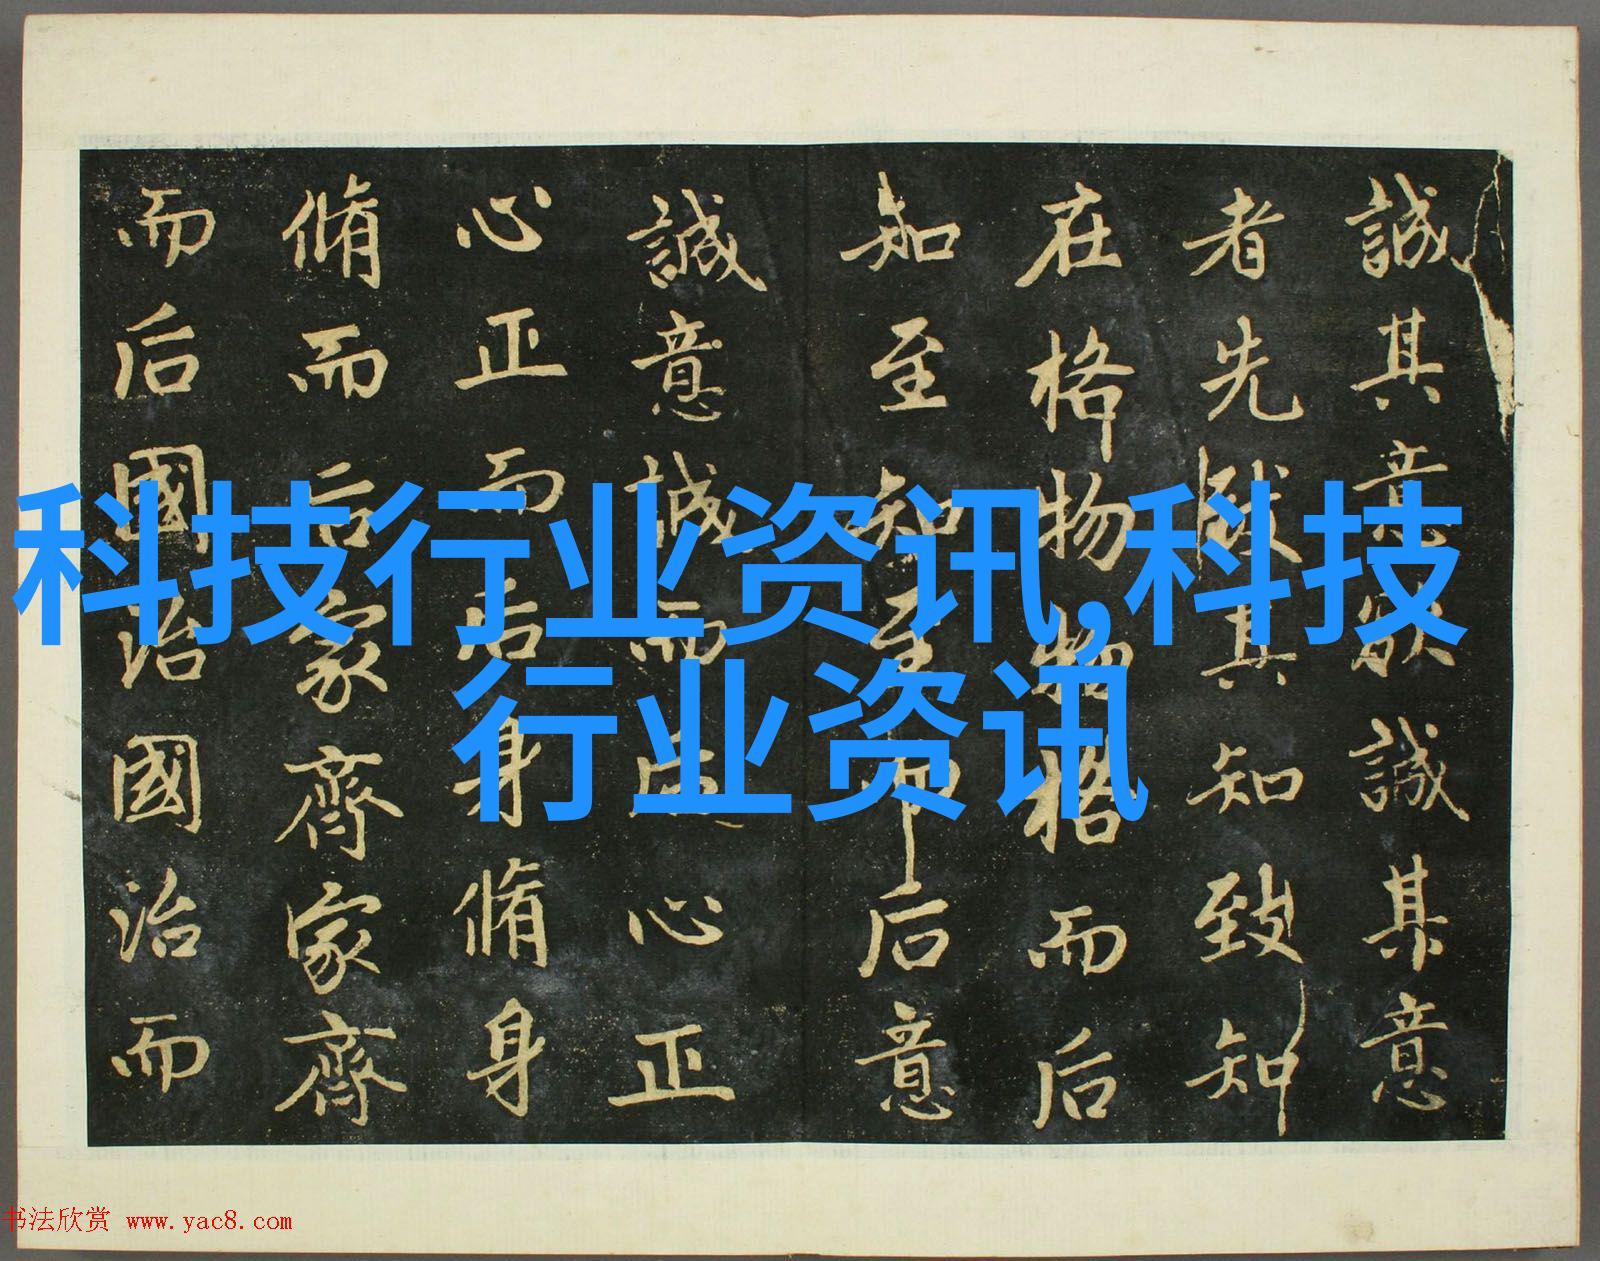 科技行业资讯,科技
行业资讯
誠其意欲誠其意
者先其知致知
在格物物格而后
知至知至后意
誠意誠而心正
心正而后身脩身
脩而后家齊家齊
而后國治國治而
书法欣赏 www.yac8.com